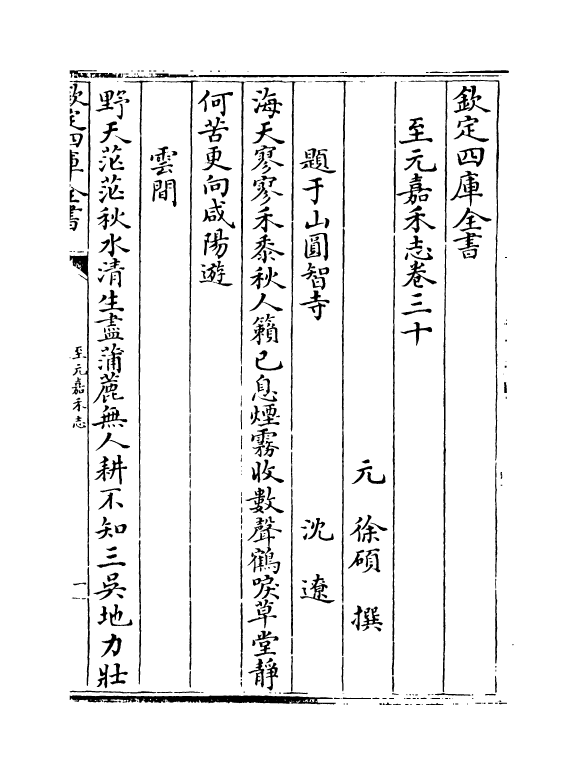 欽定四庫全書
至元嘉禾志卷三十
元 徐碩 撰
題于山圓智寺 沈遼
海天寥寥禾黍秋人籟已息煙霧收數聲鶴唳草堂靜
何苦更向咸陽遊
雲間
野天茫茫秋水清生盡蒲蔍無人耕不知三吳地力壯
欽定四庫全書
至元嘉禾志
一